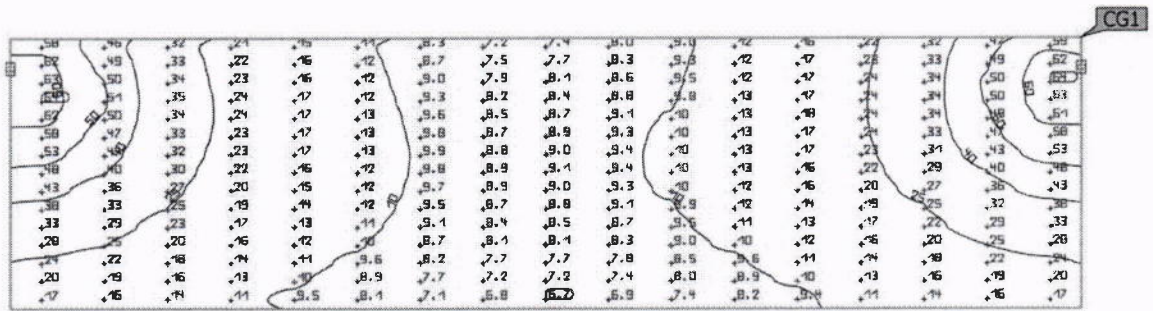 CG1
58 46 32 21 15 11 8.3 7.2 7.4 8.0 9.0 12 16 32
62 49 33 22 16 12 8.7 7.5 7.7 8.3 9.3 12 17 23 33 49 62
63 50 34 23 16 12 9.0 7.9 8.1 8.6 9.5 12 17 24 34 50
51 35 24 17 12 9.3 8.2 8.4 8.8 9.8 13 17 24 34 50 63
62 50 34 24 17 13 9.6 8.5 8.7 9.1 10 13 18 24 34 61
58 47 33 23 17 13 9.8 8.7 8.9 9.3 10 13 17 24 33 58
53 32 23 17 13 9.9 8.8 9.0 9.4 10 13 17 23 31 53
48 40 30 22 16 12 9.8 8.9 9.1 9.4 10 13 16 22 29 40 48
43 36 27 20 15 12 9.7 8.9 9.0 9.3 10 12 16 20 27 36 43
38 33 25 19 14 12 9.5 8.7 8.8 9.1 9.9 12 14 19 25 32 38
33 29 23 17 13 11 9.1 8.4 8.5 8.7 9.5 11 13 17 22 29 33
28 25 20 16 12 10 8.7 8.1 8.1 8.3 9.0 10 12 16 20 25 28
24 22 18 14 11 9.6 8.2 7.7 7.7 7.8 8.5 9.6 11 14 18 22 24
20 19 16 13 10 8.9 7.7 7.2 7.2 7.4 8.0 8.9 10 13 16 19 20
17 16 14 11 9.5 8.1 7.1 6.8 6.7 6.9 7.4 8.2 9.4 11 14 16 17